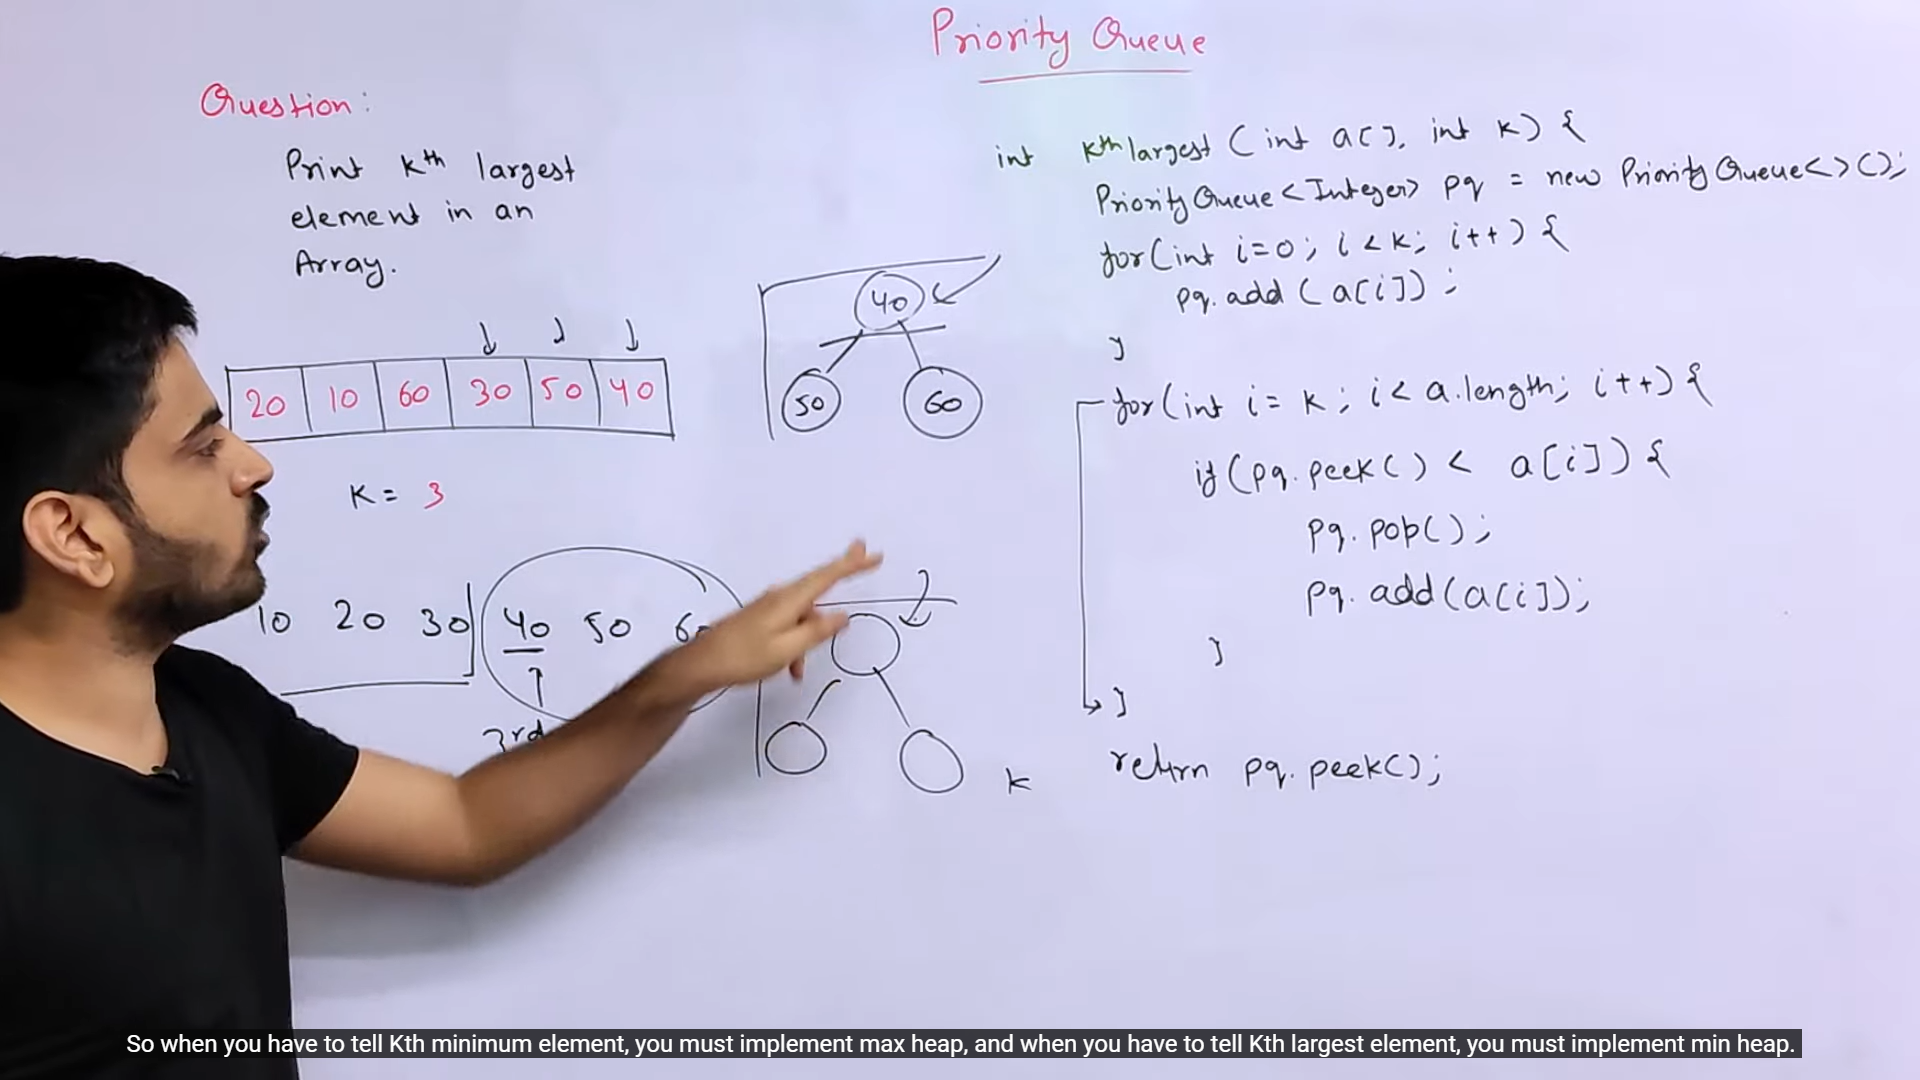 Priority Queue
Question:
Print kth largest
element in an
Array.
20 10 60 30 50 40
K = 3
10 20 30 40 50 60
3rd
40
50 60
K
int kth largest (int a[], int k) {
Priority Queue <Integer> pq = new Priority Queue<>();
for(int i=0; i<k; i++) {
pq.add (a[i]);
}
for(int i= k; i< a.length; i++) {
if(pq.peek() < a[i]) {
pq.pop();
pq.add(a[i]);
}
}
return pq.peek();
So when you have to tell Kth minimum element, you must implement max heap, and when you have to tell Kth largest element, you must implement min heap.